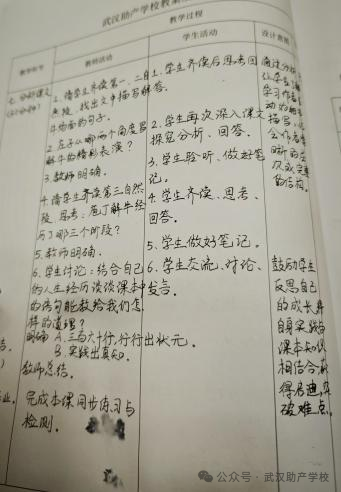 武汉助产学校教案
教学过程
教学环节
教师活动
学生活动
设计意图
七、分析课文
1. 请学生齐读第一、二自
然段,找出文中描写解
牛场面的句子。
2. 庄子从哪两个角度写
解牛的精彩表演?
3. 教师明确。
4. 请学生齐读第三自然
段,思考:庖丁解牛经
历了哪三个阶段?
5. 教师明确。
6. 学生讨论:结合自己
的人生经历谈谈课本中
的语句能教给我们怎
样的道理?
明确 A. 三百六十行,行行出状元。
B. 实践出真知。
教师总结。
完成本课同步练习与
检测。
1. 学生齐读后思考回
答。
2. 学生再次深入课文
探究分析、回答。
3. 学生聆听、做好笔
记。
4. 学生齐读、思考、
回答。
5. 学生做好笔记。
6. 学生交流、讨论、
发言。
通过分析
让学生
学习作者
动
描写
会作者
晰而
次
的结构。
鼓励学生
反思自己
的成长并
自身实践与
课本知识
相结合获
得启迪,突
破难点。
公众号·武汉助产学校